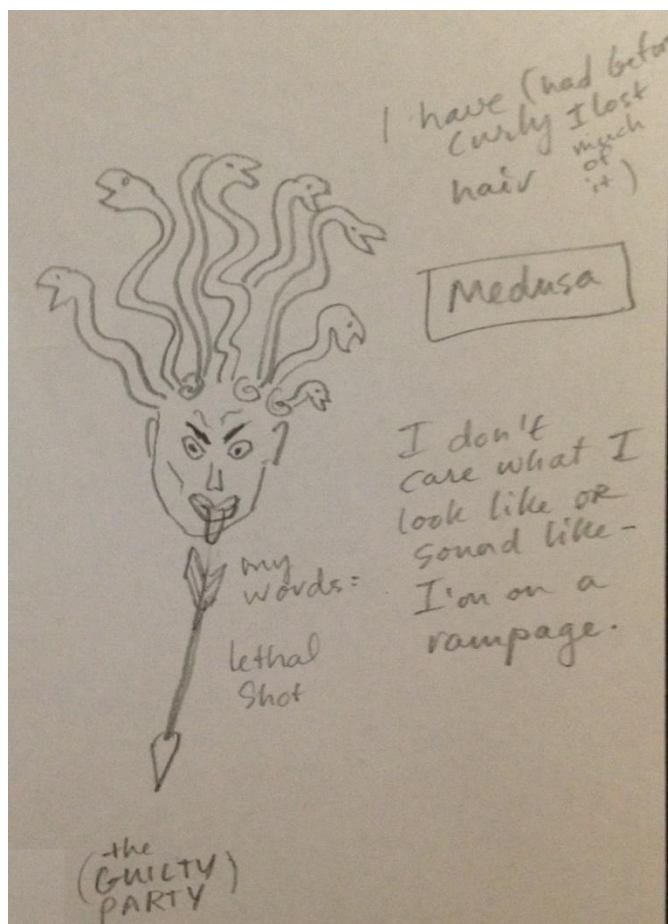 I have (had before
curly I lost
hair much
of
it)
Medusa
I don't
care what I
look like OR
sound like-
I'm on a
rampage.
my
words:
lethal
shot
(the
GUILTY
PARTY)